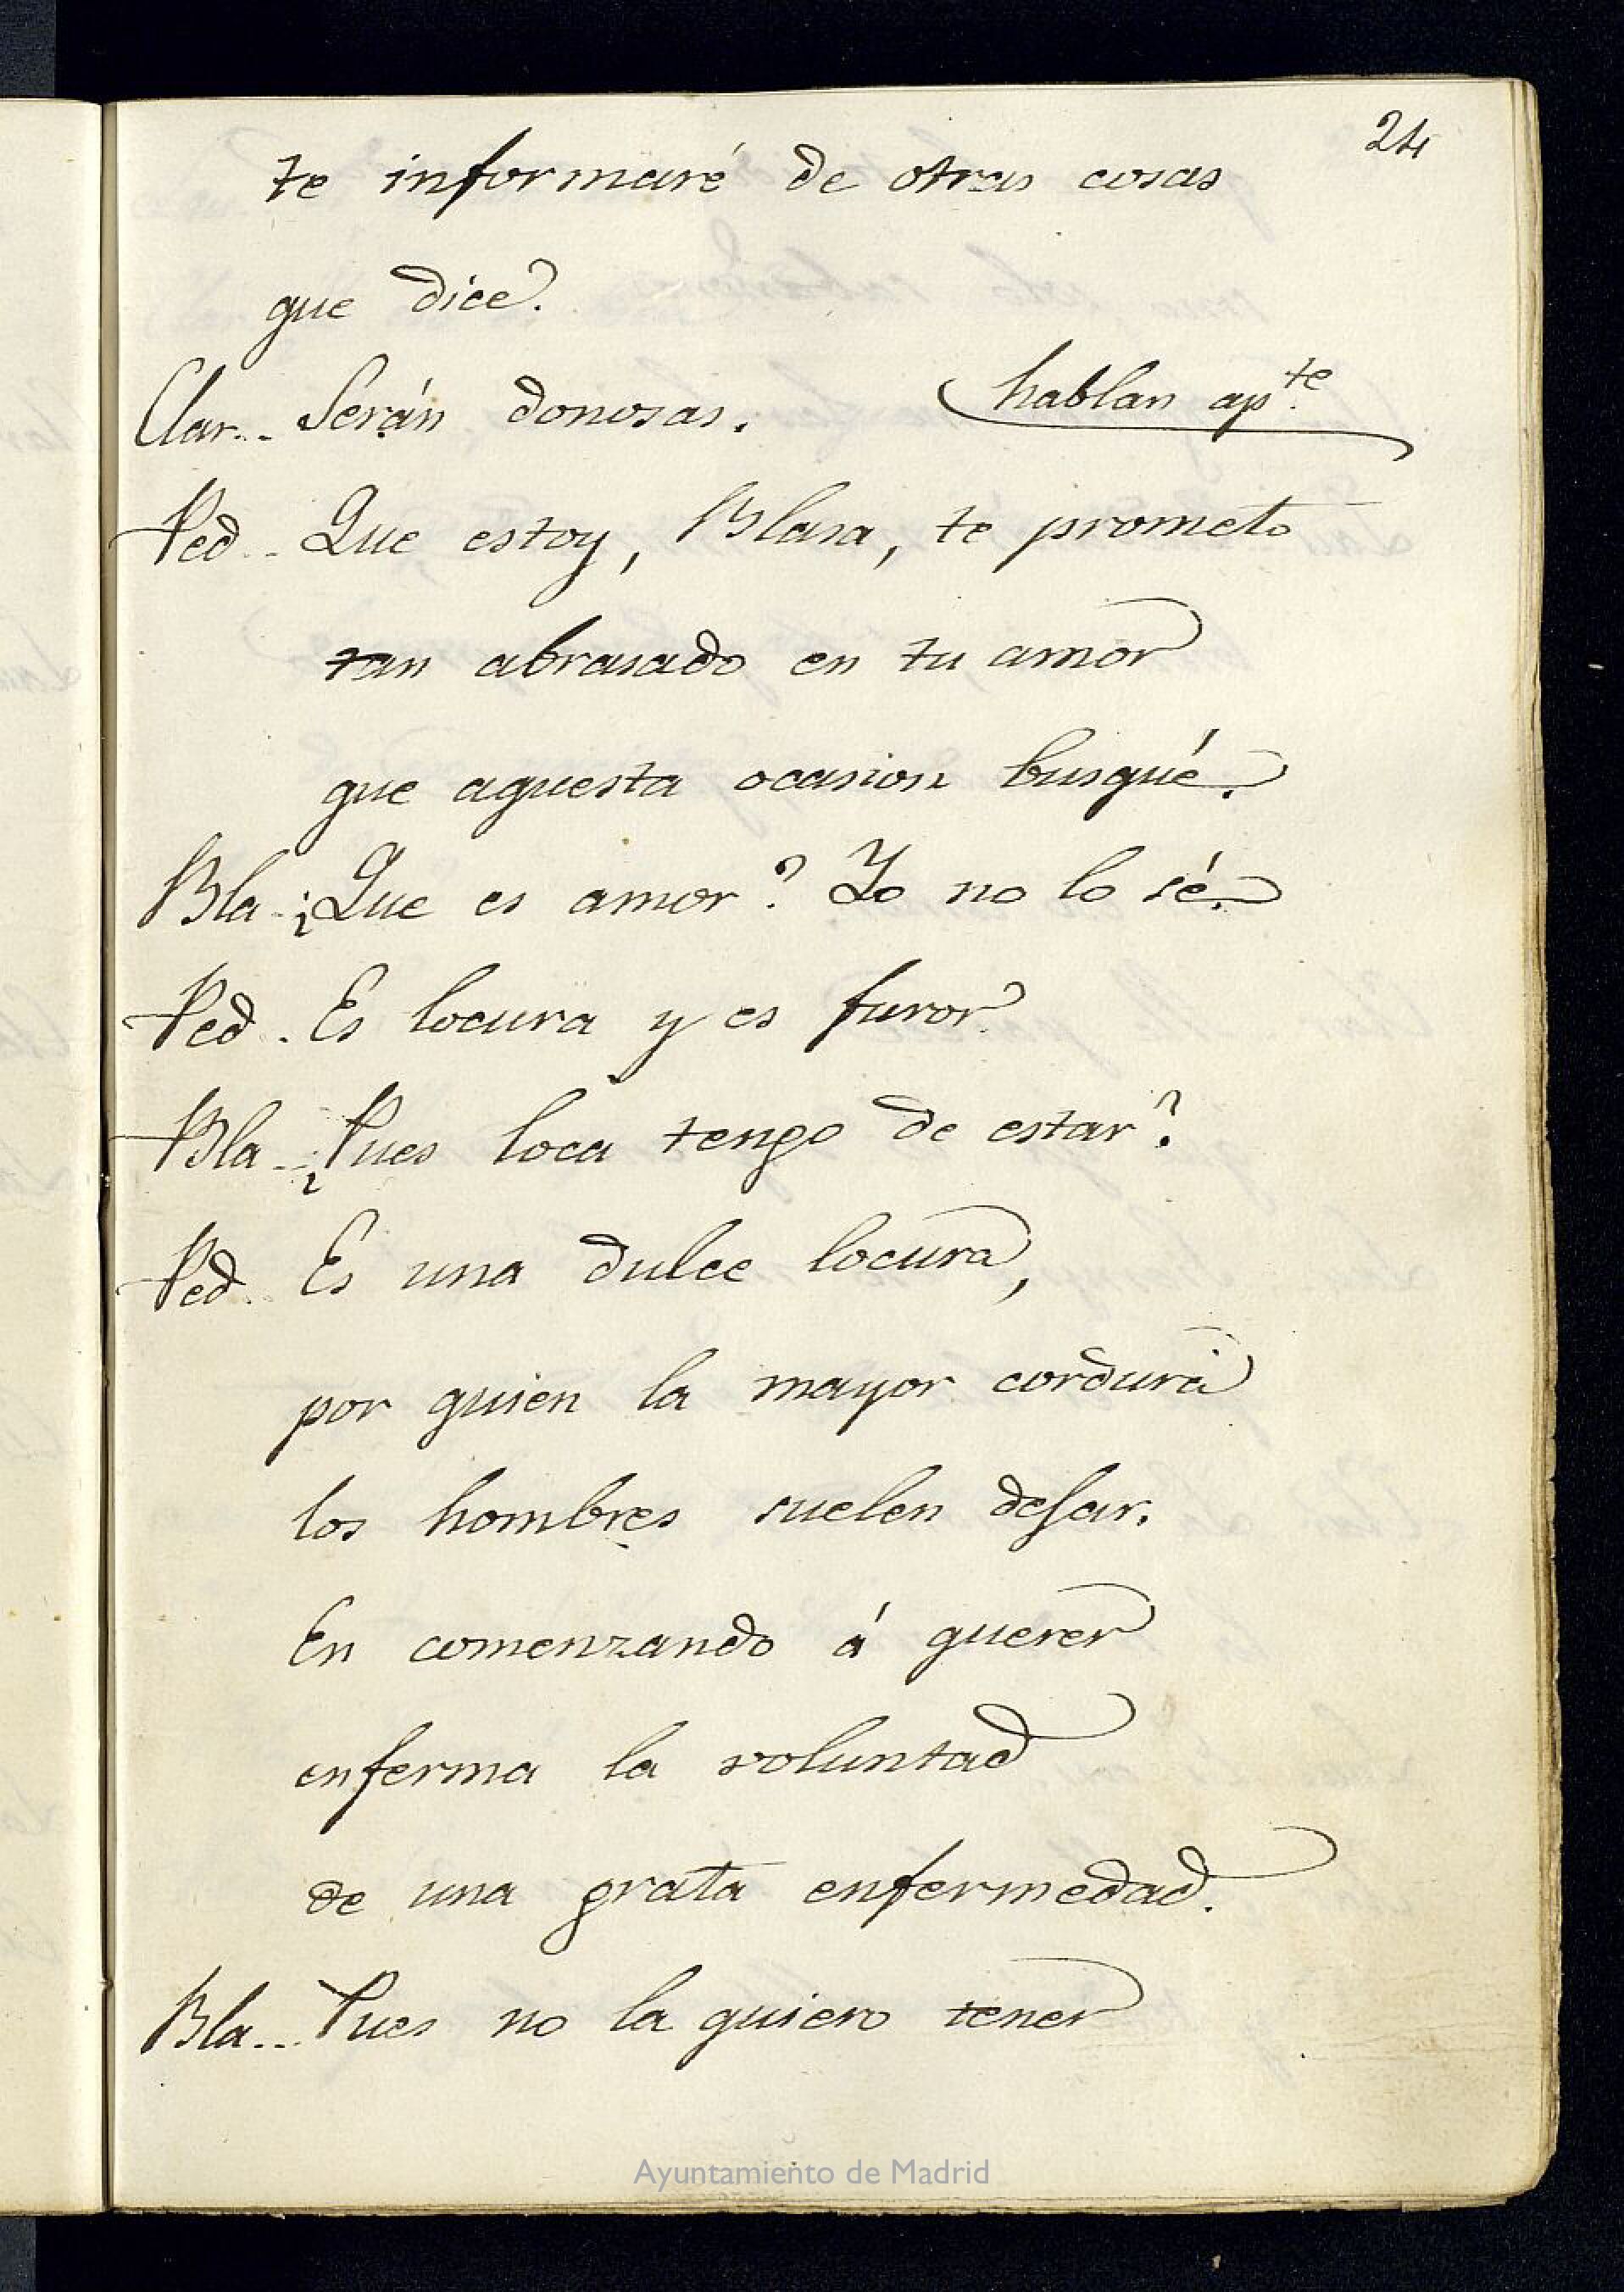 24
te informaré de otras cosas
que dice.
Clar... Serán donosas. hablan ap.te
Ped.. Que estoy, Blasa, te prometo
tan abrasado en tu amor
que aquesta ocasion busqué.
Bla.. ¿Que es amor? Yo no lo sé.
Ped. Es locura y es furor.
Bla.. ¿Pues loca tengo de estar?
Ped.. Es una dulce locura,
por quien la mayor cordura
los hombres suelen dejar.
En comenzando á querer
enferma la voluntad
de una grata enfermedad.
Bla... Pues no la quiero tener
Ayuntamiento de Madrid